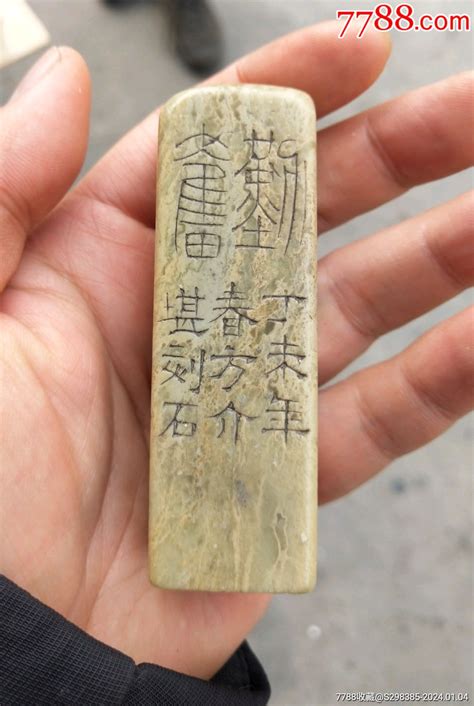 7788.com
奮
丁未年
春方介
堪刻石
7788收藏@S298385-2024.01.04